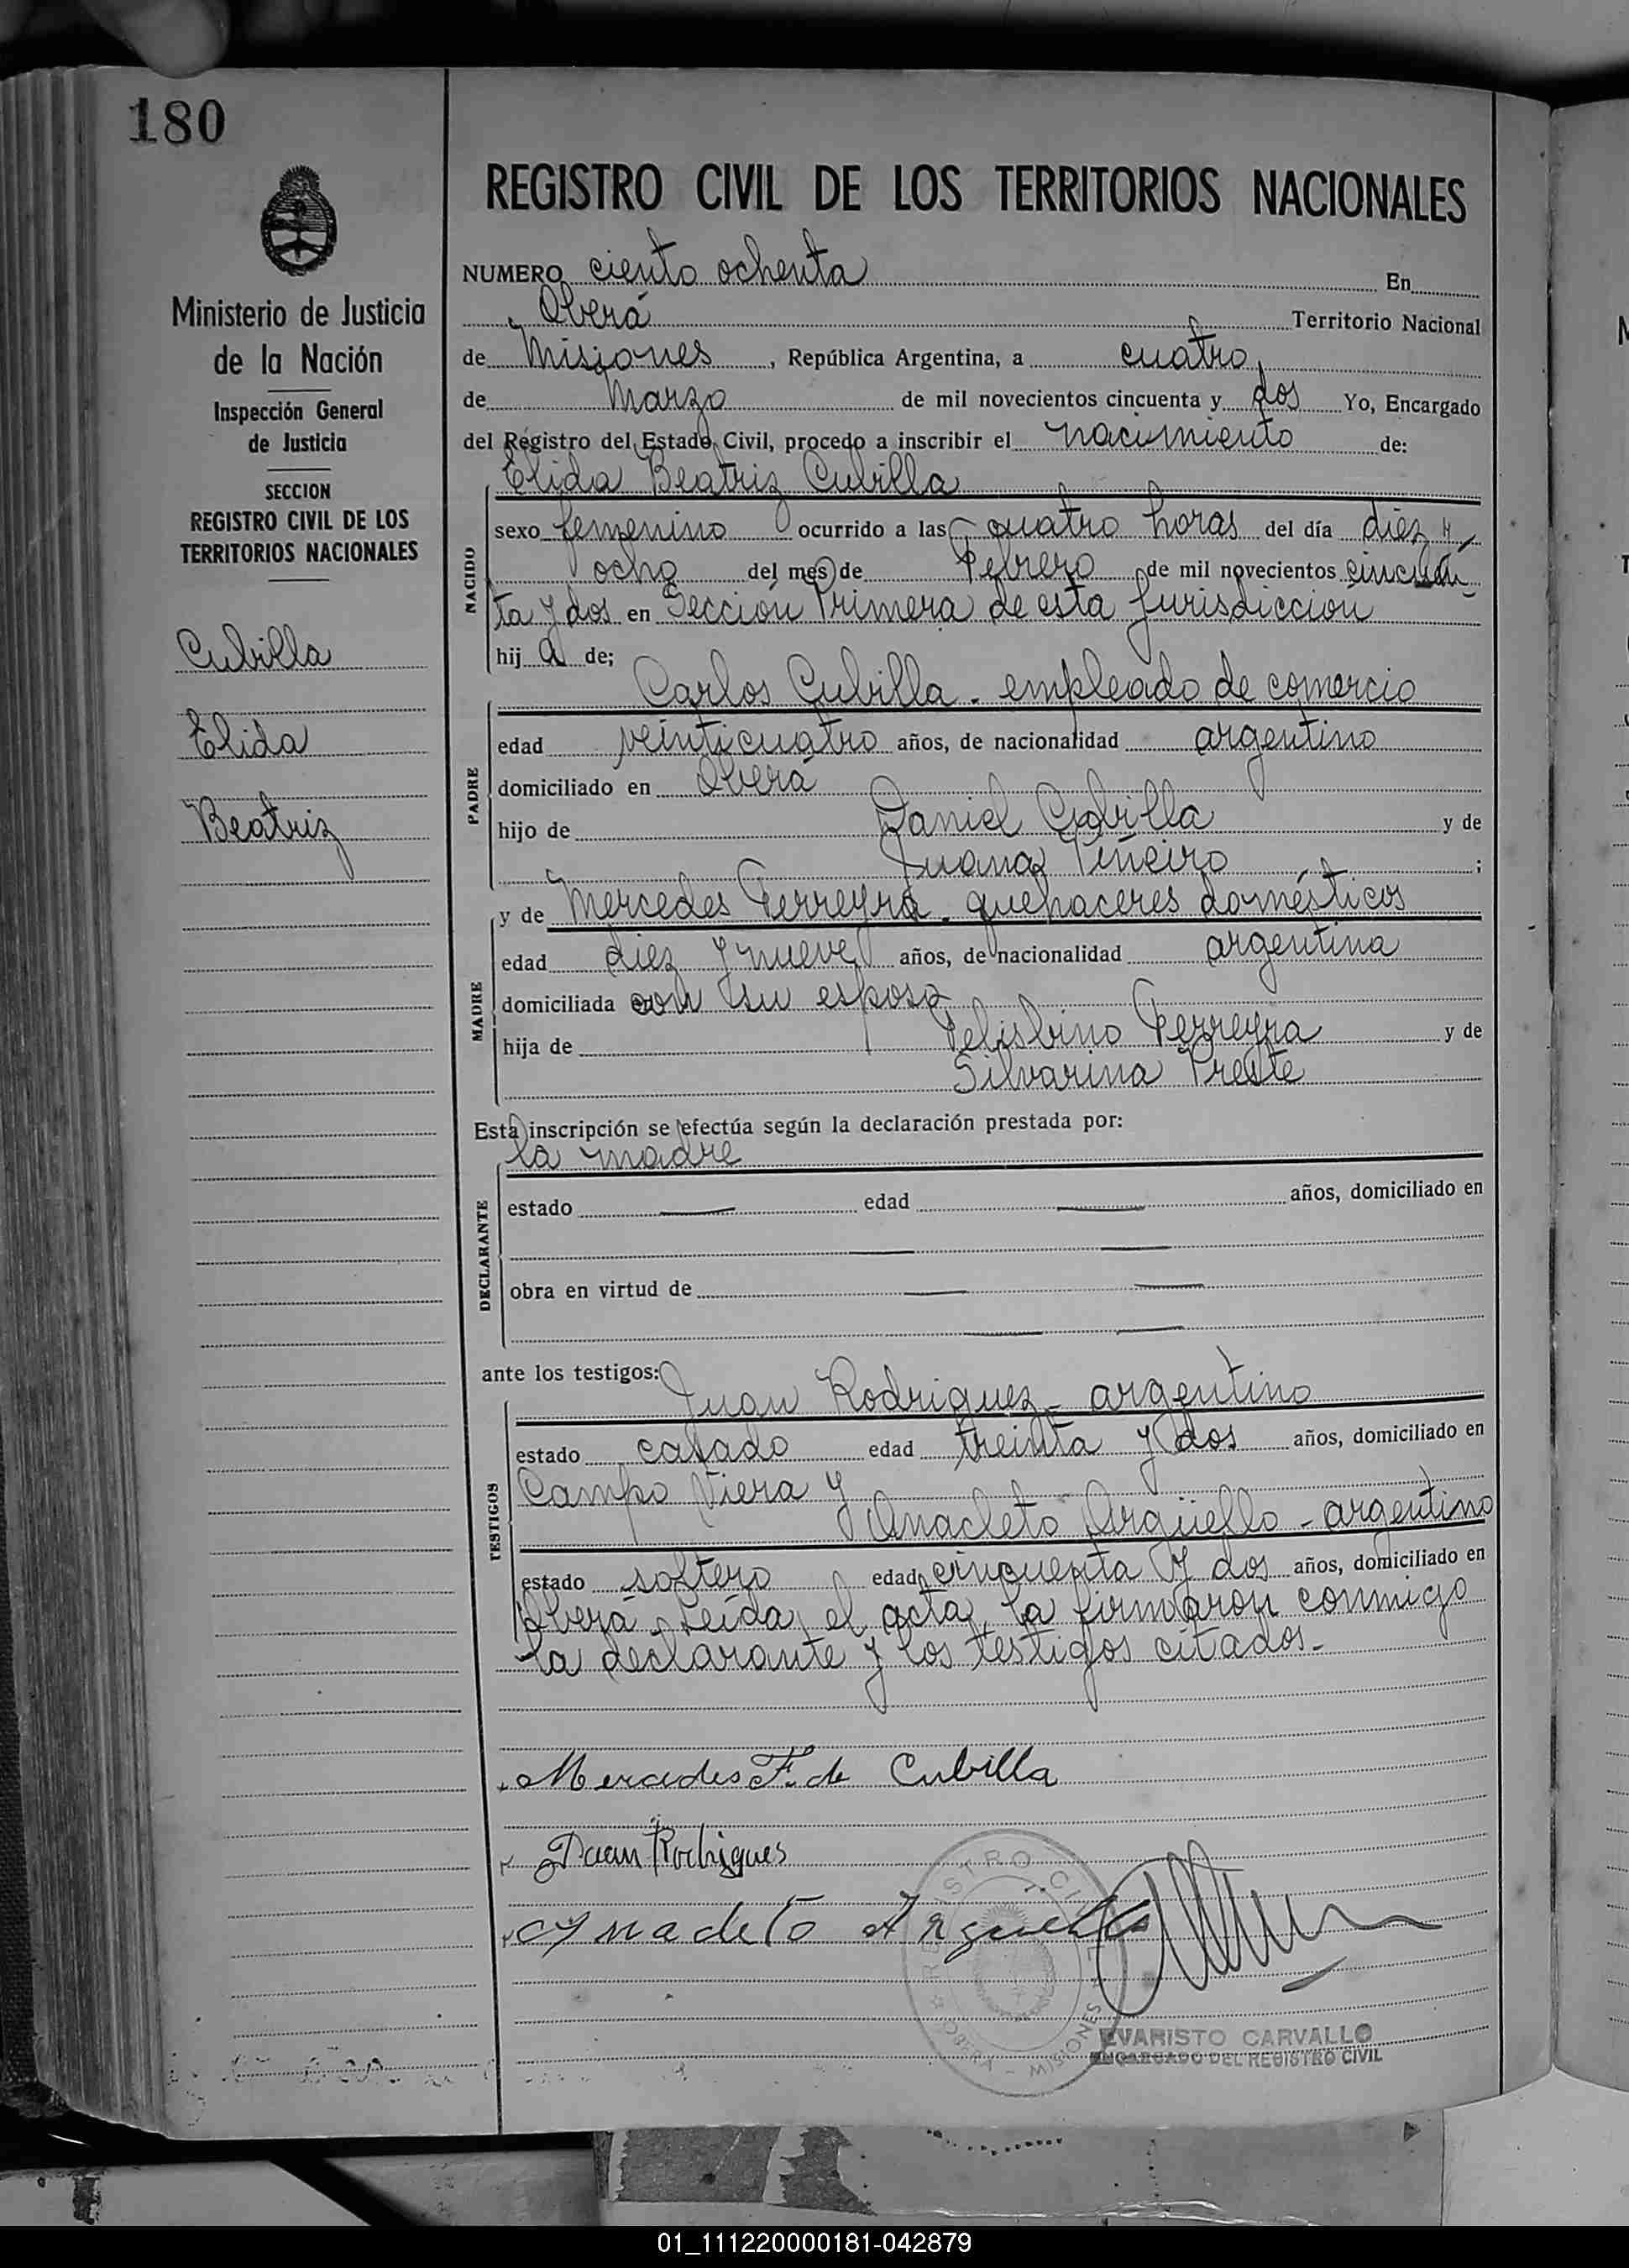 180
Ministerio de Justicia
de la Nación
Inspección General
de Justicia
SECCION
REGISTRO CIVIL DE LOS
TERRITORIOS NACIONALES
Cubilla
Elida
Beatriz
REGISTRO CIVIL DE LOS TERRITORIOS NACIONALES
NUMERO ciento ochenta En
Oberá Territorio Nacional
de Misiones, República Argentina, a cuatro
de Marzo de mil novecientos cincuenta y dos Yo, Encargado
del Registro del Estado Civil, procedo a inscribir el nacimiento de:
Elida Beatriz Cubilla
NACIDO
sexo femenino ocurrido a las cuatro horas del día diez y
ocho del mes de Febrero de mil novecientos cincuen-
ta y dos en Sección Primera de esta jurisdicción
hij a de;
Carlos Cubilla - empleado de comercio
PADRE
edad veinticuatro años, de nacionalidad argentino
domiciliado en Oberá
hijo de Daniel Cubilla y de
Juana Piñeiro ;
y de Mercedes Ferreyra - quehaceres domésticos
MADRE
edad diez y nueve años, de nacionalidad argentina
domiciliada con su esposo
hija de Felisbino Ferreyra y de
Silvarina Preste
Esta inscripción se efectúa según la declaración prestada por:
la madre
DECLARANTE
estado edad años, domiciliado en
obra en virtud de
ante los testigos:
Juan Rodriguez - argentino
TESTIGOS
estado casado edad treinta y dos años, domiciliado en
Campo Viera y
Anacleto Argüello - argentino
estado soltero edad cincuenta y dos años, domiciliado en
Oberá. Leída el acta, la firmaron conmigo
la declarante y los testigos citados.-
Mercedes F. de Cubilla
Juan Rodrigues
Anacleto Arguello
REGISTRO CIVIL
OBERA - MISIONES
EVARISTO CARVALLO
ENCARGADO DEL REGISTRO CIVIL
01_111220000181-042879